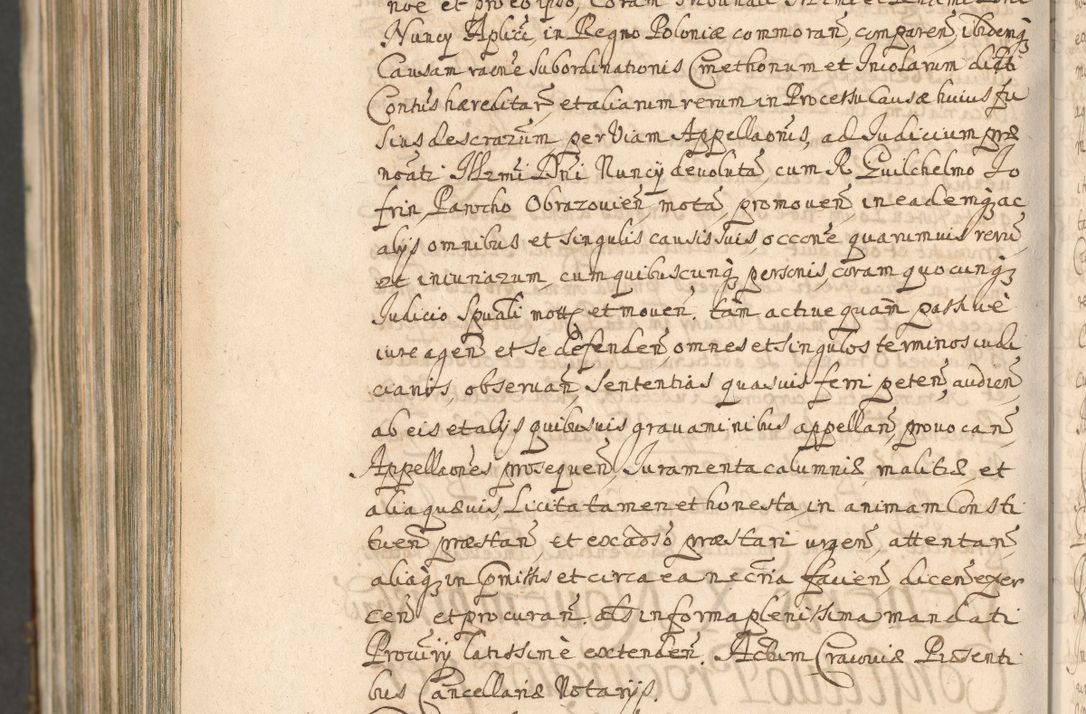 noe et pro eo ipso, Coram Tribunali Illrmi et Rndmi Dni
Nuncÿ Aplici, in Regno Poloniæ commorañ, compareñ, ibidemq;
Causam raone Subordinationis Cmethonum et Incolarum dicti
Contus hæreditar, et aliarum rerum in Processu Causæ huius fu
sius descrarum, per Viam Appellaonis, ad Iudicium præ
noati Illrmi Dni Nuncÿ devoluta, cum R. Guilchelmo Jo
frin, Parocho Obrazovien, mota, promoven, in eademq; ac
alÿs omnibus et singulis causis suis occone quarumvis reru
et iniuriarum, cum quibuscunq; personis, coram quocunq;
Iudicio Spuali mottis et moven. tam active quam passivè
iure agen et se defenden, omnes et singulos terminos iudi
ciarios, observan, Sententias quasvis ferri peten, audien
ab eis et alÿs quibusvis gravaminibus appellan, provocan,
Appellaones prosequen, Iuramenta calumniæ, malitiæ et
alia quævis, Licita tamen et honesta, in animam Consti
tuen præstan, et ex adso præstari urgen, attentan
aliaq; in præmissis et circa ea necria facien dicen exer
cen et procuran. Als in forma plenissima mandati
Provisÿ latissimè extenden. Actum Cracoviæ Præsenti
bus Cancellariæ Notarÿs.